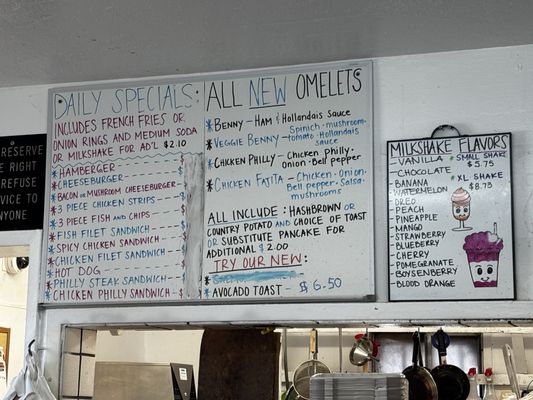 RESERVE
HE RIGHT
REFUSE
VICE TO
NYONE
DAILY SPECIALS:
INCLUDES FRENCH FRIES OR
ONION RINGS AND MEDIUM SODA
OR MILKSHAKE FOR AD'L $2.10
* HAMBERGER
* CHEESEBURGER
* BACON OR MUSHROOM CHEESEBURGER
* 3 PIECE CHICKEN STRIPS
* 3 PIECE FISH AND CHIPS
* FISH FILET SANDWICH
* SPICY CHICKEN SANDWICH
* CHICKEN FILET SANDWICH
* HOT DOG
* PHILLY STEAK SANDWICH
* CHICKEN PHILLY SANDWICH
ALL NEW OMELETS
* BENNY - HAM & HOLLANDAIS SAUCE
* VEGGIE BENNY - SPINICH · MUSHROOM ·
TOMATO · HOLLANDAIS
SAUCE
* CHICKEN PHILLY - CHICKEN · PHILLY ·
ONION · BELL PEPPER
* CHICKEN FAJITA - CHICKEN · ONION ·
BELL PEPPER · SALSA ·
MUSHROOMS
ALL INCLUDE: HASHBROWN OR
COUNTRY POTATO AND CHOICE OF TOAST
OR SUBSTITUTE PANCAKE FOR
ADDITIONAL $2.00
TRY OUR NEW:
* AVOCADO TOAST - $6.50
MILKSHAKE FLAVORS
- VANILLA
- CHOCOLATE
- BANANA
- WATERMELON
- OREO
- PEACH
- PINEAPPLE
- MANGO
- STRAWBERRY
- BLUEBERRY
- CHERRY
- POMEGRANATE
- BOYSENBERRY
- BLOOD ORANGE
* SMALL SHAKE
$5.75
* XL SHAKE
$8.75